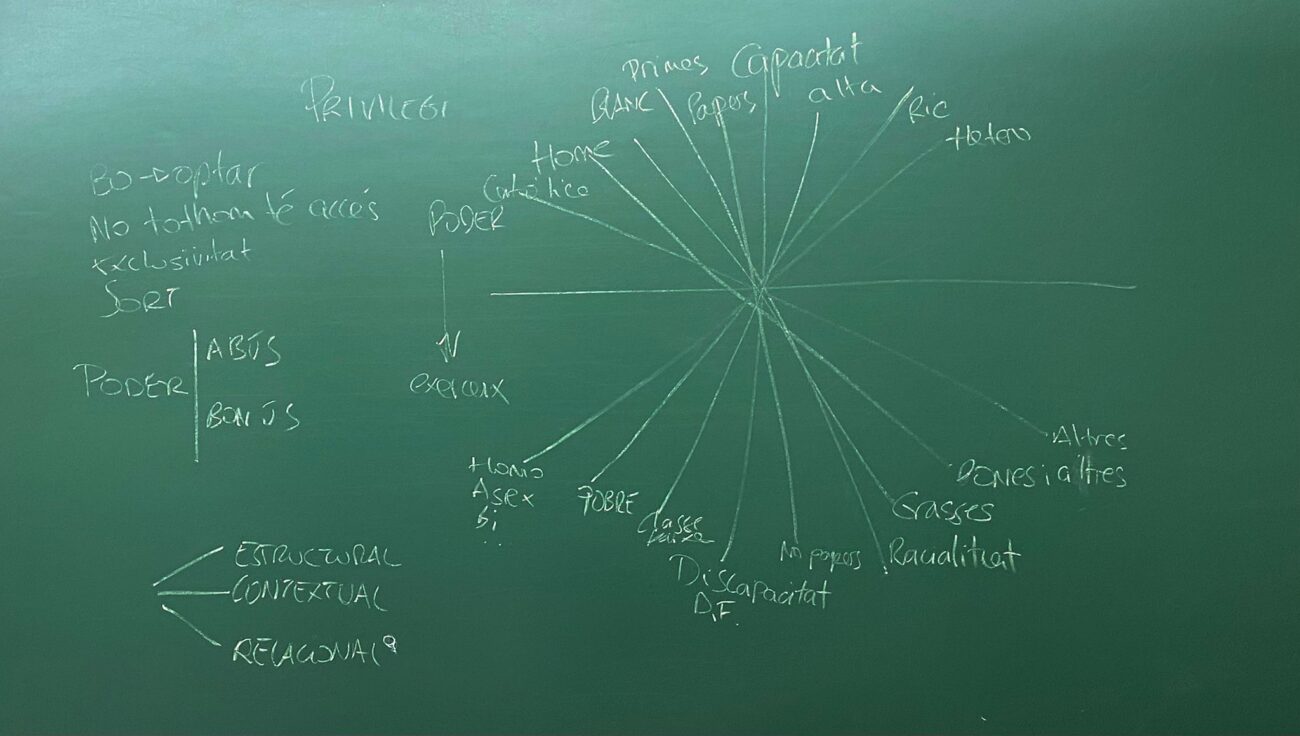 PRIVILEGI
BO → optar
No tothom té accés
Exclusivitat
SORT
PODER
ABÚS
BON ÚS
PODER
exerceix
ESTRUCTURAL
CONTEXTUAL
RELACIONAL
Catòlico
Home
BLANC
Primes
Papers
Capacitat
alta
Ric
Hetero
Homo
Asex
Bi
...
POBRE
Classe
baixa
Discapacitat
D.F.
No papers
Racialitzat
Grasses
DONES i altres
Altres